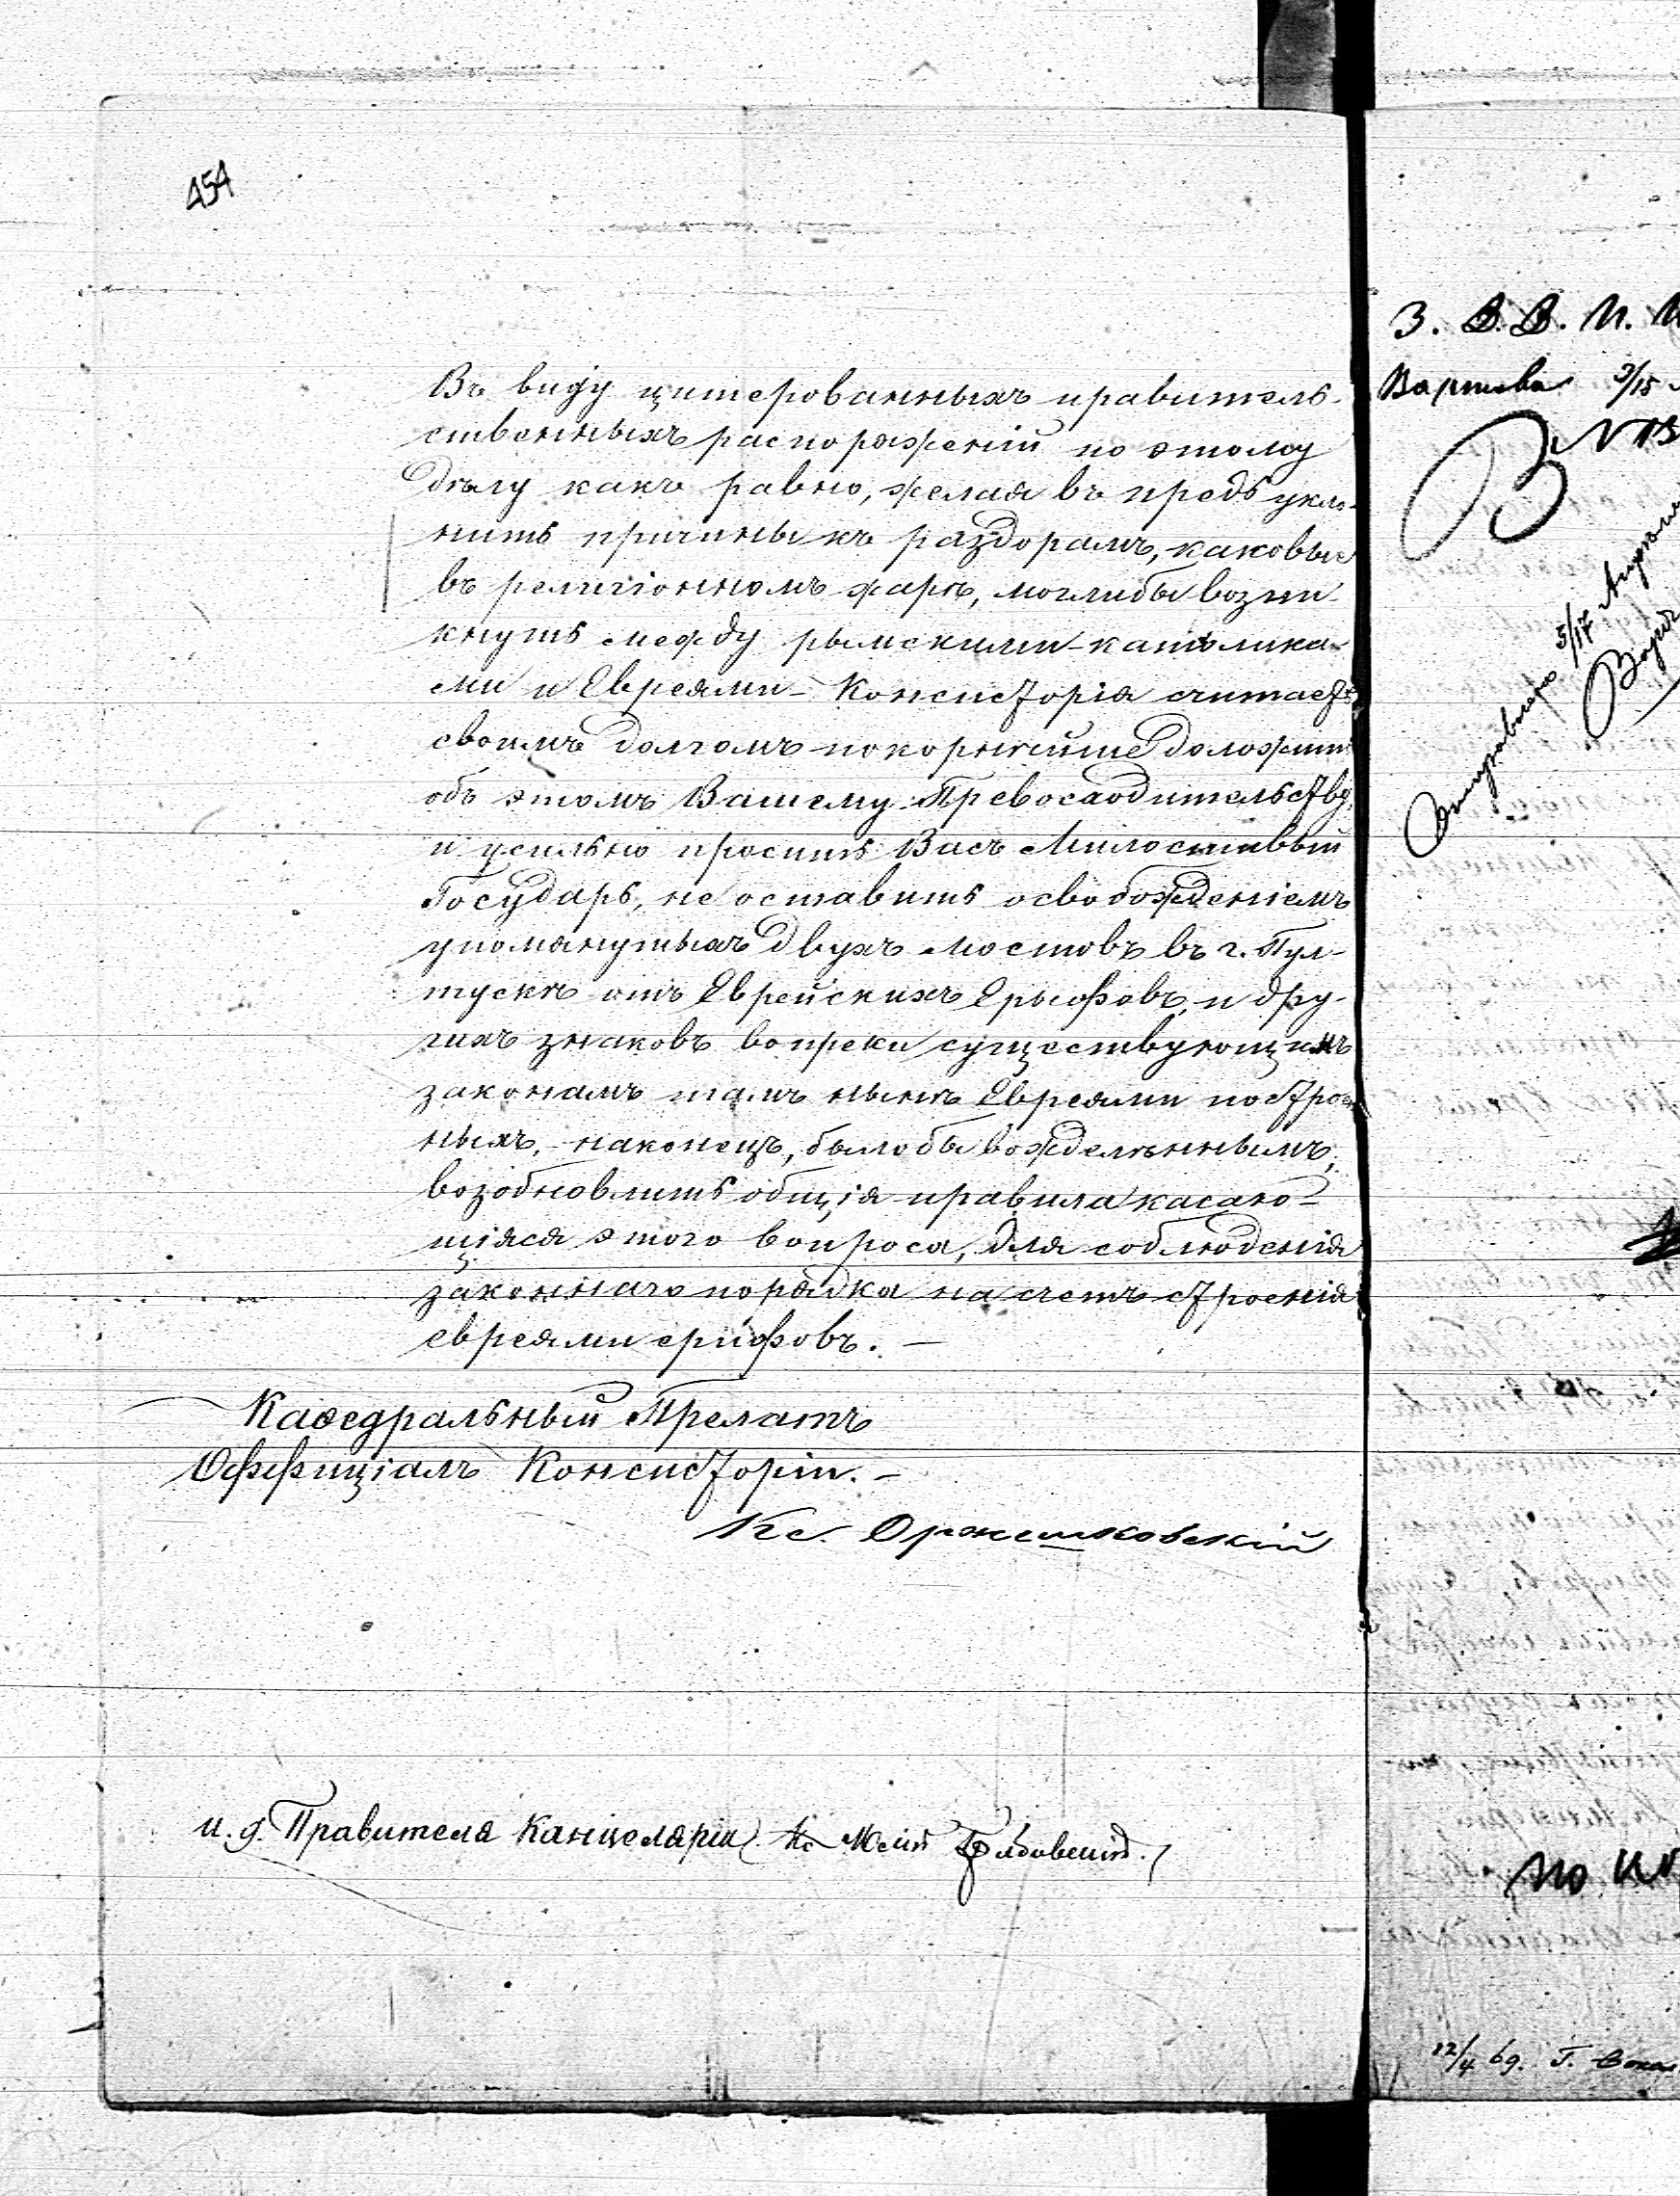 454
Въ виду цитерованныхъ правитель-
ственныхъ распоряженій по этому
дѣлу какъ равно, желая въ предь укло-
нить причины къ раздорамъ, каковые
въ религіонномъ жарѣ, моглибы возни-
кнуть между рымскими-католика-
ми и Евреями - Консисторія считаетъ
своимъ долгомъ покорнѣйше доложить
объ этомъ Вашему Превосходительству,
и усильно просить Васъ Милостивый
Государь, не оставить освобожденіемъ
упомянутыхъ двухъ мостовъ въ г. Пул-
тускѣ отъ Еврейскихъ Ерыфовъ и дру-
гихъ знаковъ вопреки существующимъ
законамъ тамъ нынѣ Евреями построен
ныхъ, - наконецъ, былобы вожделѣннымъ,
возобновлить общія правила касаю-
щіяся этого вопроса, для соблюденія
законнаго порядка на счетъ строенія
евреями ерифовъ. -
Каѳедральный Прелатъ
Оффиціалъ Консисторіи. -
Кс. Оржешковскій
и. д. Правителя Канцеляріи Кс
З. В. В. И.
Варшава 3/15
5/17
по
12/4 69. Г.